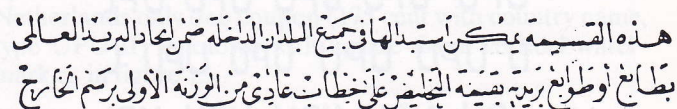 هذه القسيمه يمكن استبدالها فى جميع البلدان الداخلة ضمن اتحاد البريد العالمى
بطابع أو طوابع بريدية بقيمة التخليص على خطاب عادى من الوزنة الاولى برسم الخارج